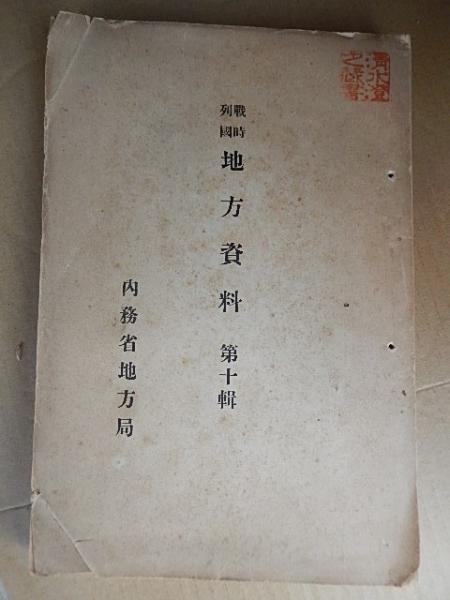 清水澄
之蔵書
戰時
列國
地方資料 第十輯
内務省地方局